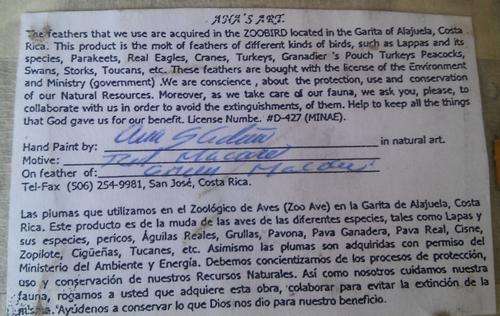 ANA'S ART.
The feathers that we use are acquired in the ZOOBIRD located in the Garita of Alajuela, Costa
Rica. This product is the molt of feathers of different kinds of birds, such as Lappas and its
species, Parakeets, Real Eagles, Cranes, Turkeys, Granadier´s Pouch Turkeys Peacocks,
Swans, Storks, Toucans, etc. These feathers are bought with the license of the Environment
and Ministry (government) .We are conscience , about the protection, use and conservation
of our Natural Resources. Moreover, as we take care of our fauna, we ask you, please, to
collaborate with us in order to avoid the extinguishments, of them. Help to keep all the things
that God gave us for our benefit. License Numbe. #D-427 (MINAE).
Hand Paint by: in natural art.
Motive: Red Macaw
On feather of: Green Macaw
Tel-Fax (506) 254-9981, San José, Costa Rica.
Las plumas que utilizamos en el Zoológico de Aves (Zoo Ave) en la Garita de Alajuela, Costa
Rica. Este producto es de la muda de las aves de las diferentes especies, tales como Lapas y
sus especies, pericos, Águilas Reales, Grullas, Pavona, Pava Ganadera, Pava Real, Cisne,
Zopilote, Cigüeñas, Tucanes, etc. Asimismo las plumas son adquiridas con permiso del
Ministerio del Ambiente y Energía. Debemos concientizarnos de los procesos de protección,
uso y conservación de nuestros Recursos Naturales. Así como nosotros cuidamos nuestra
fauna, rogamos a usted que adquiere esta obra, colaborar para evitar la extinción de la
misma. Ayúdenos a conservar lo que Dios nos dio para nuestro beneficio.